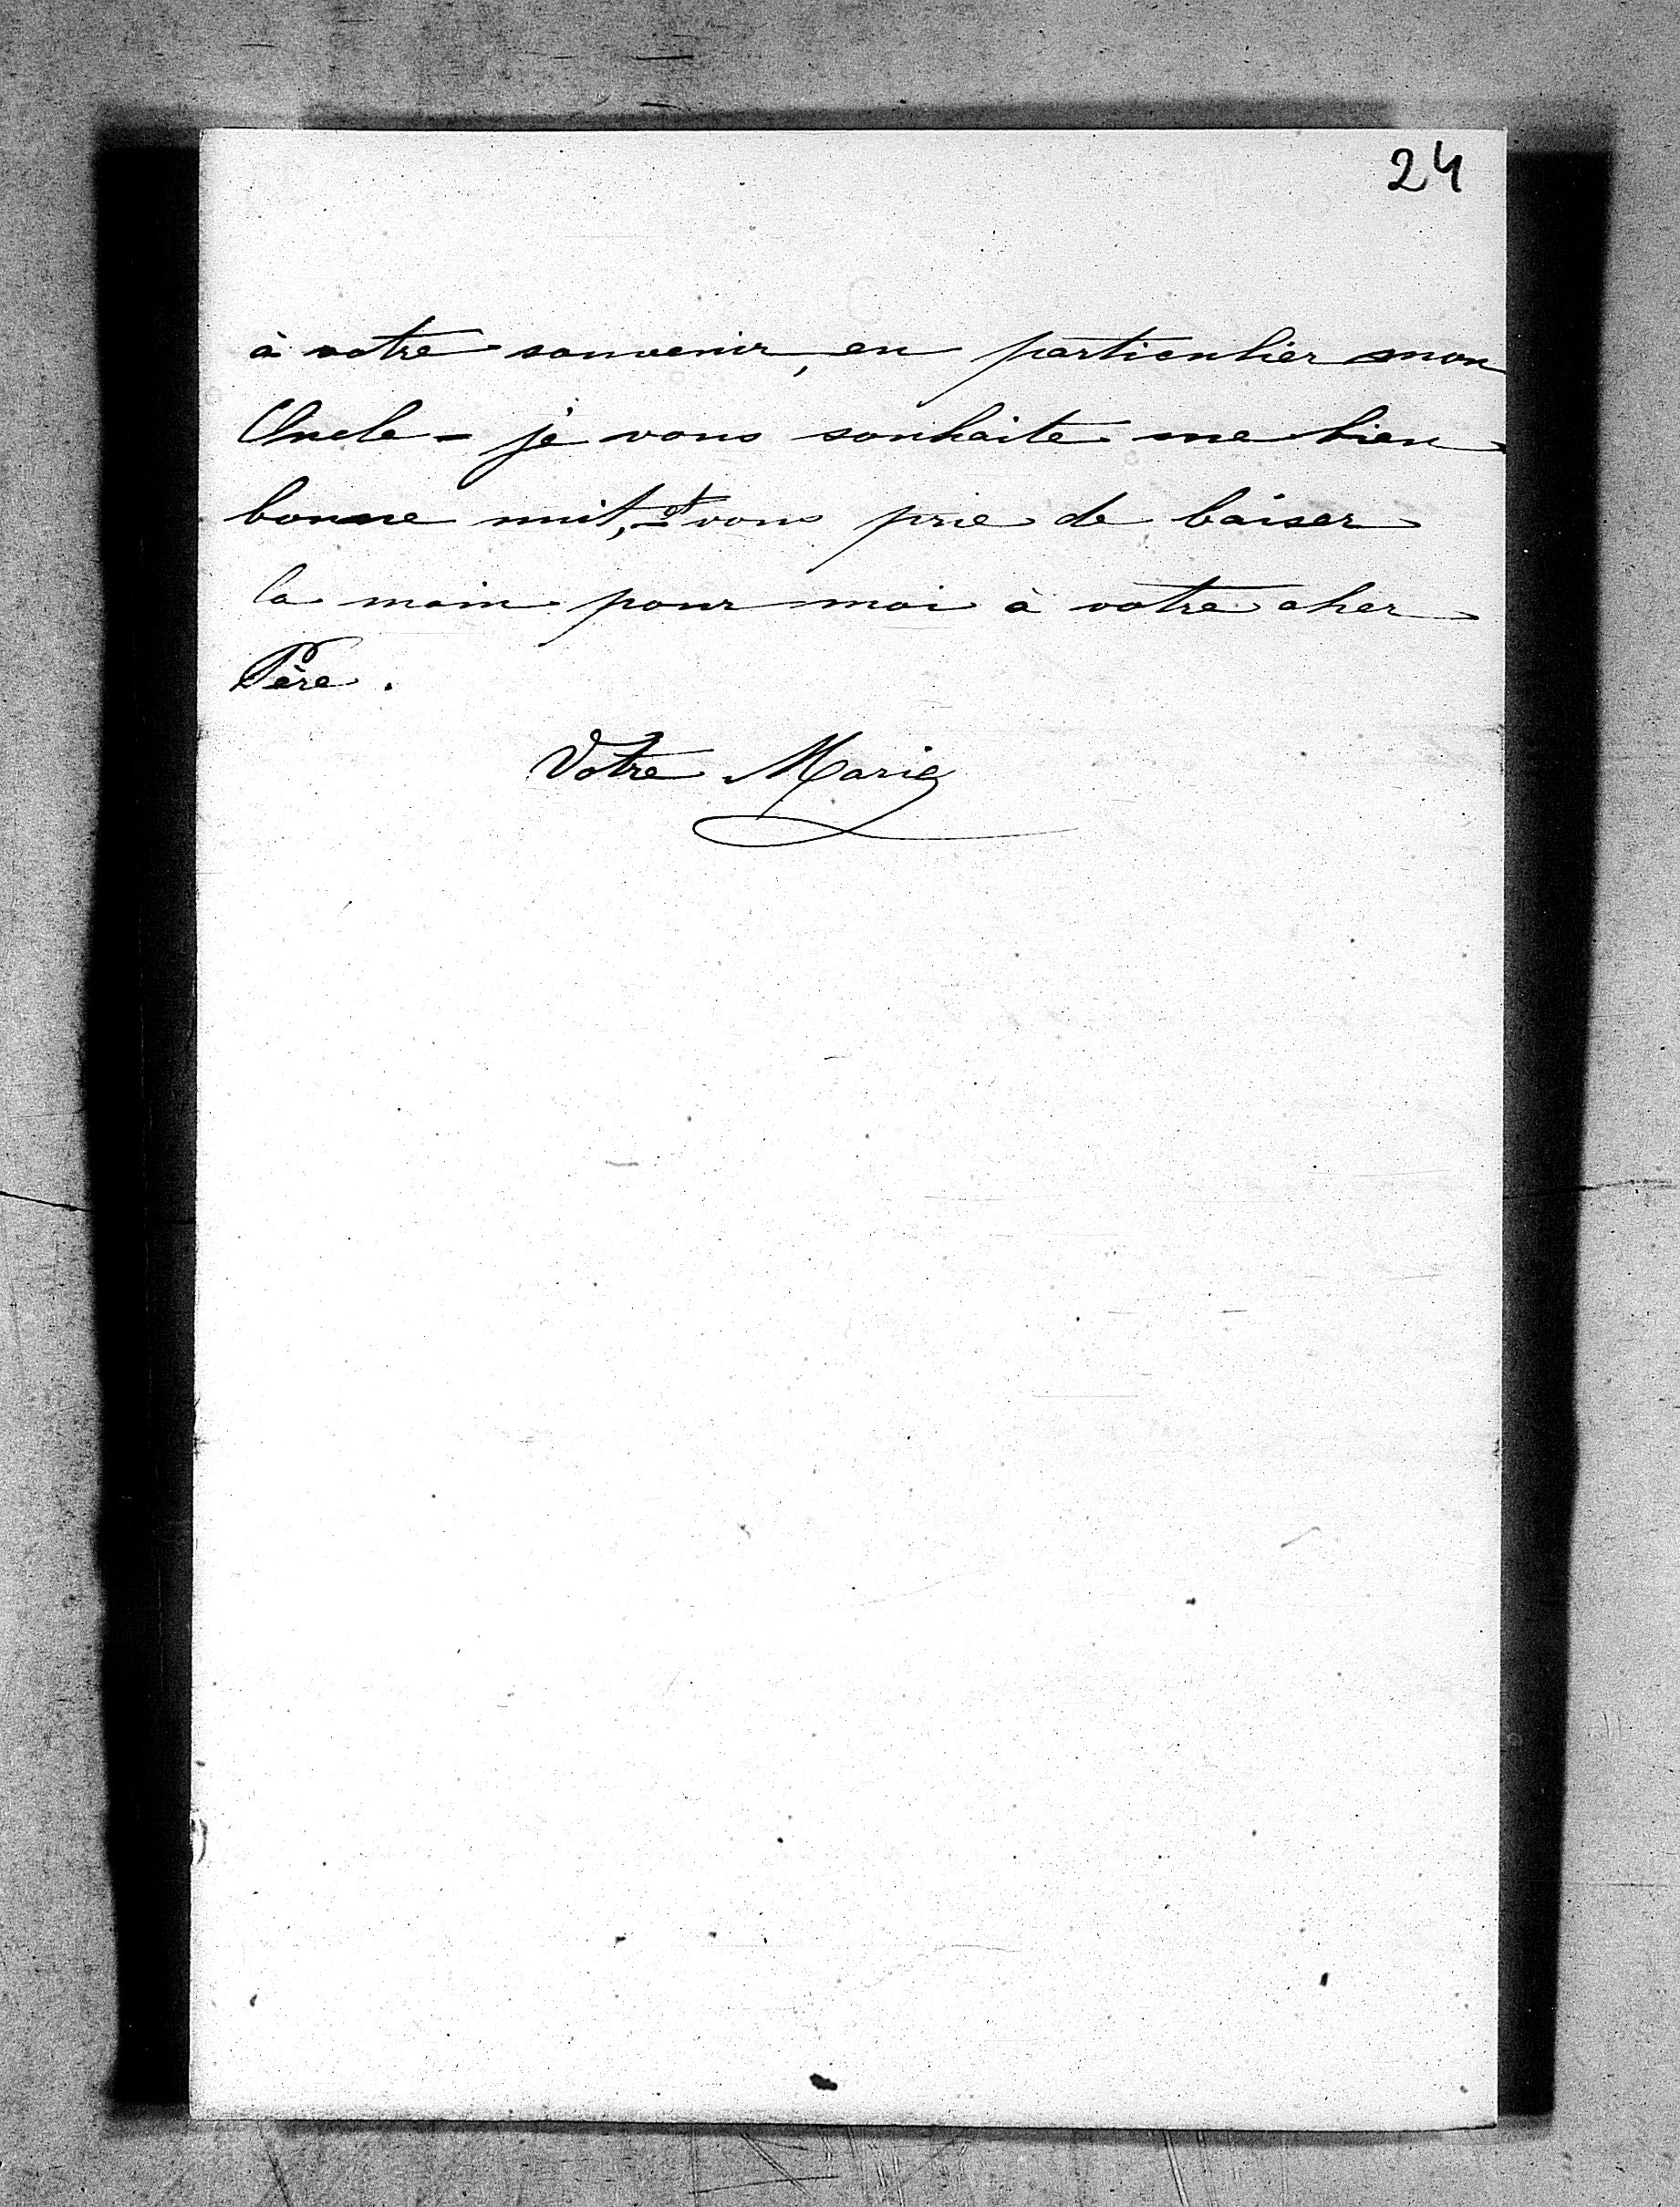 24
à votre souvenir, en particulier mon
Oncle - je vous souhaite une bien
bonne nuit, et vous prie de baiser
la main pour moi à votre cher
Père.
Votre Marie